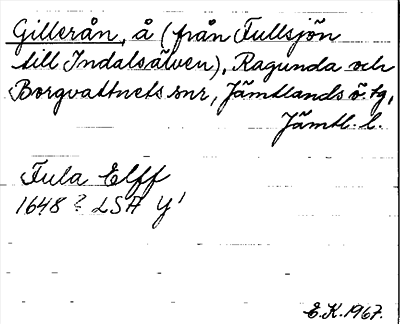 Gillerån, å (från Fullsjön
till Indalsälven), Ragunda och
Borgvattnets snr, Jämtlands ö. tg,
Jämtl. l.
Fula Elff
1648 ? LSA Y'
E.K. 1967.